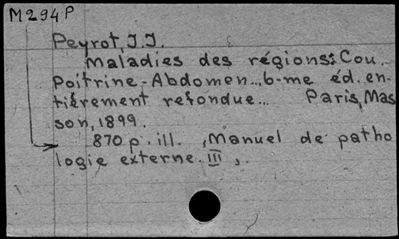 M294P
Peyrot, J.J.
Maladies des régions: Cou..
Poitrine-Abdomen...6-me éd. en-
tièrement refondue... Paris, Mas
son, 1899.
870 p. ill. „Manuel de patho
logie externe. III „.